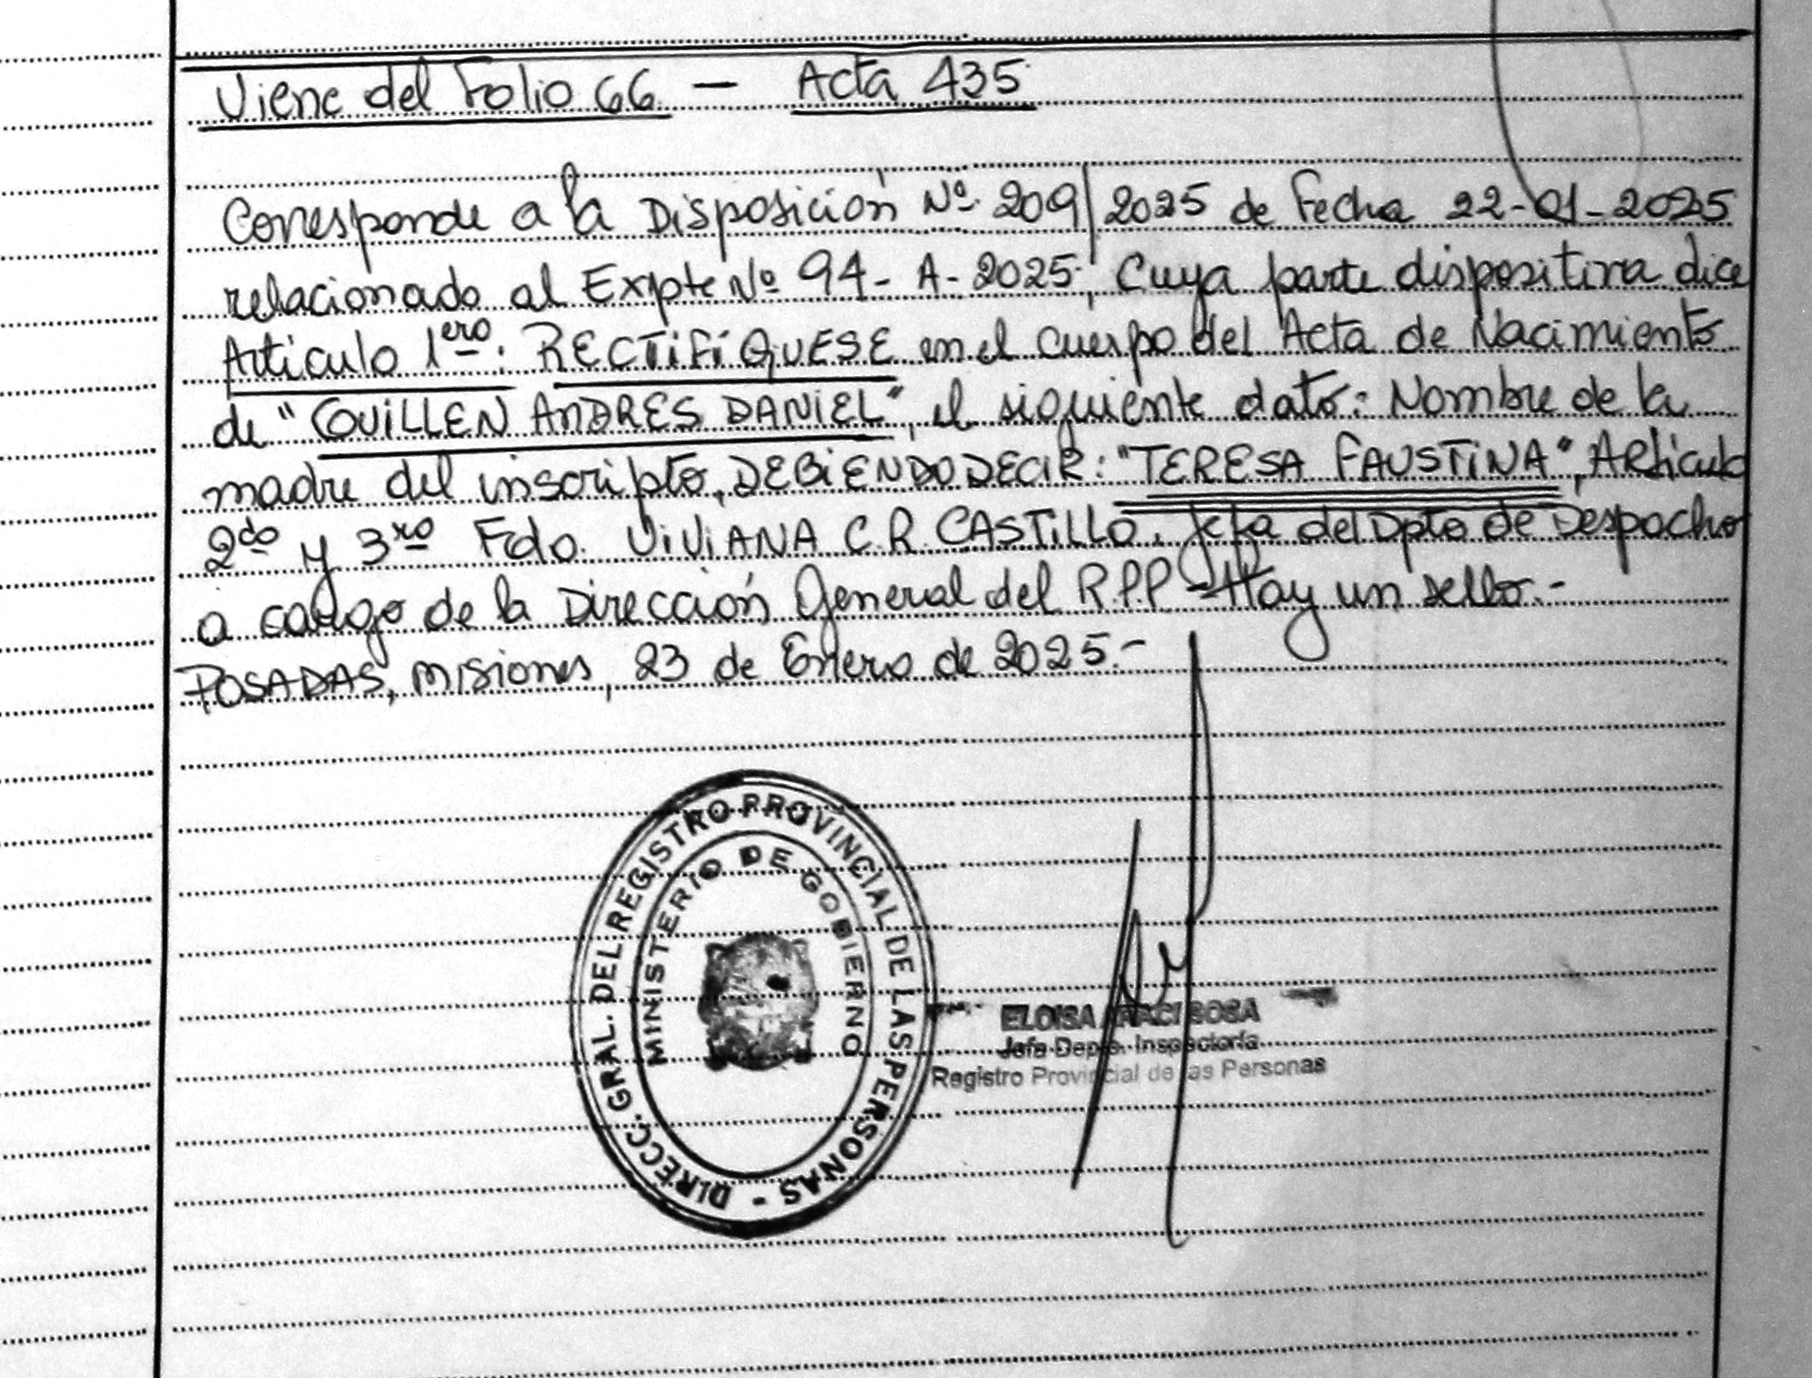 Viene del Folio 66 — Acta 435
Corresponde a la Disposición Nº 209/2025 de Fecha 22-01-2025
relacionado al Expte Nº 94-A-2025, Cuya parte dispositiva dice
Articulo 1ero: RECTIFÍQUESE en el cuerpo del Acta de Nacimiento
de "GUILLEN ANDRES DANIEL", el siguiente dato: Nombre de la
madre del inscripto, DEBIENDO DECIR: "TERESA FAUSTINA", Articulo
2do y 3ro Fdo. VIVIANA C.R. CASTILLO. Jefa del Dpto de Despacho
a cargo de la Dirección General del R.P.P - Hay un sello.-
POSADAS, Misiones, 23 de Enero de 2025.-
DIRECC. GRAL. DEL REGISTRO PROVINCIAL DE LAS PERSONAS -
MINISTERIO DE GOBIERNO
ELOISA ARACI SOSA
Jefa Depto. Inspectoría
Registro Provincial de las Personas